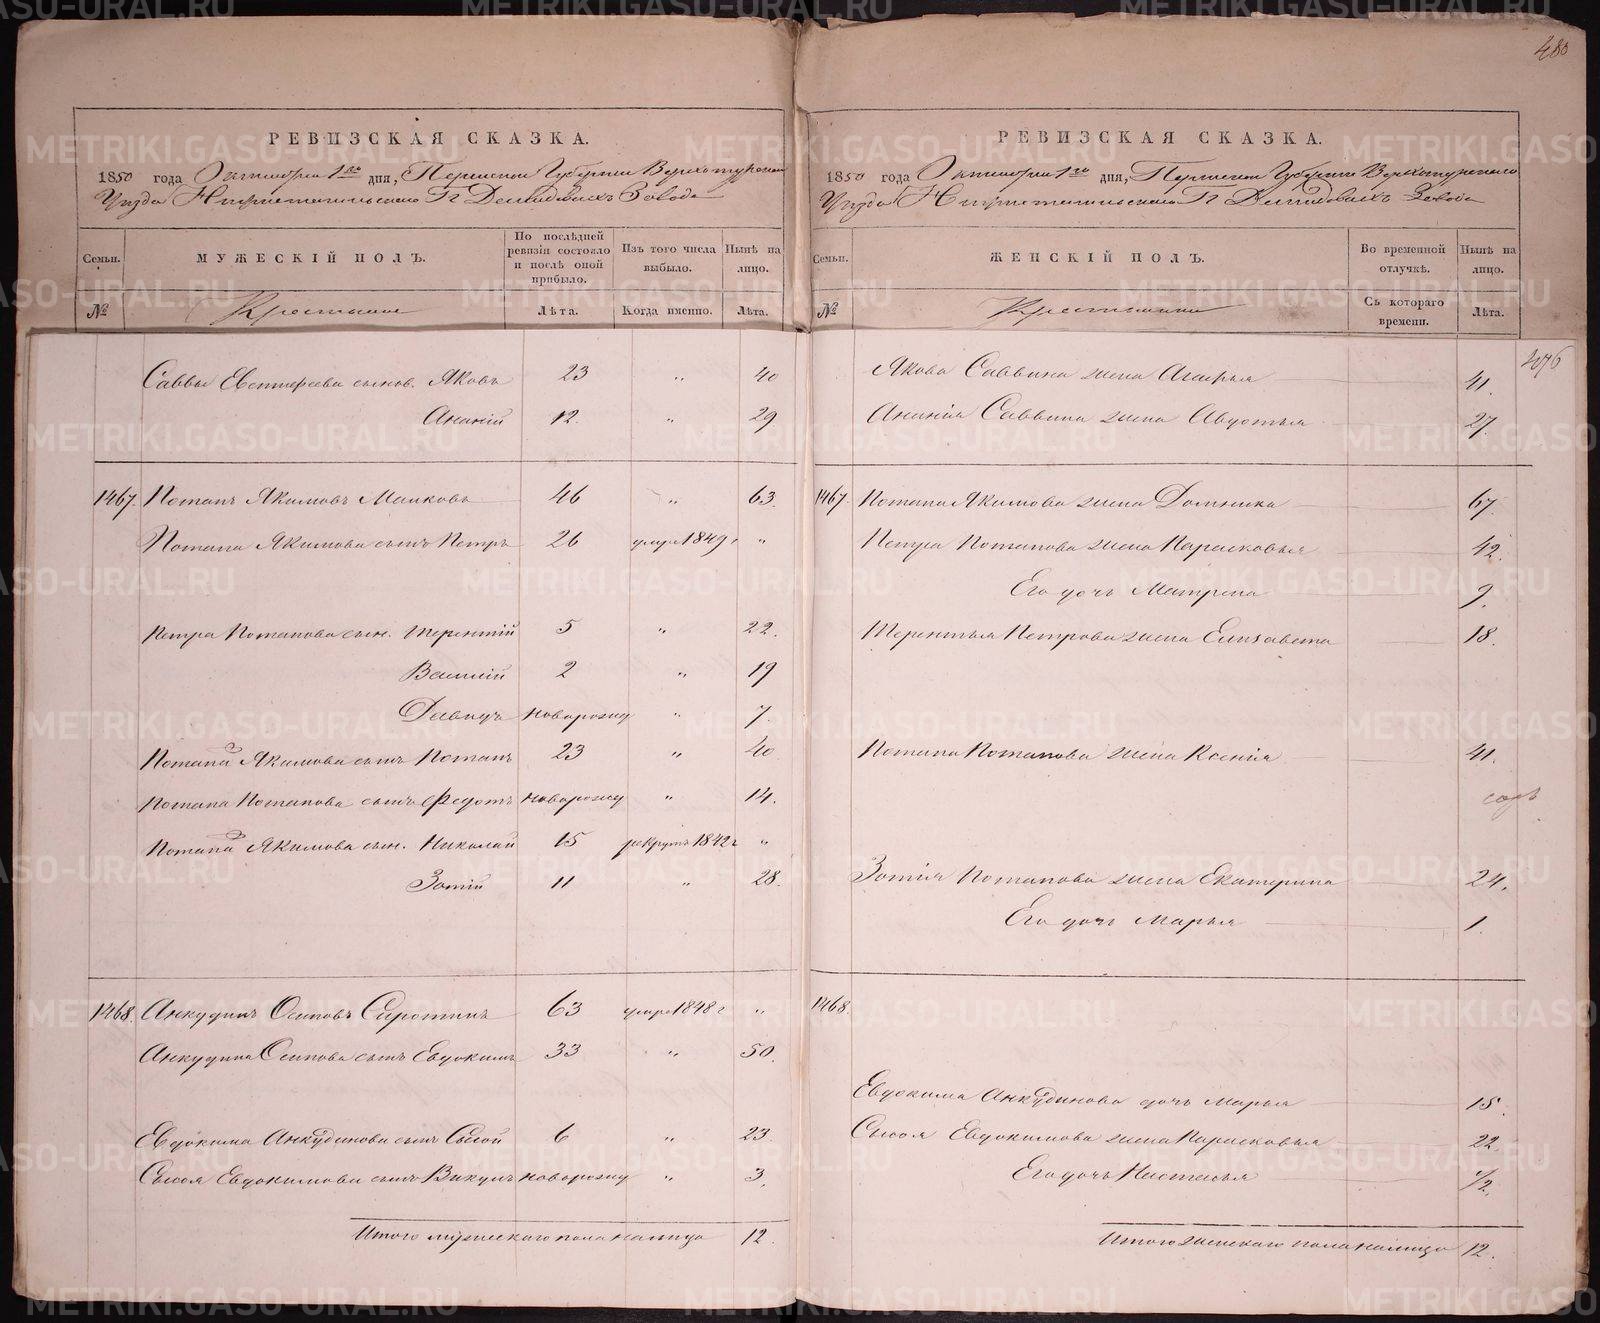 480
РЕВИЗСКАЯ СКАЗКА.
1850 года Октября 1го дня, Пермской Губернии Верхотурского
Уезда Гг Демидовых Завода
Семьи. МУЖЕСКІЙ ПОЛЪ. По послѣдней ревизіи состояло и послѣ оной прибыло. Изъ того числа выбыло. Нынѣ на лицо.
№ Крестьяне Лѣта. Когда именно. Лѣта.
Саввы сынов. Яковъ 23 " 40
Ананій 12. " 29
1467. Потапъ Якимовъ Маиковъ 46 " 63.
Потапа Якимова сынъ Петръ 26 умре 1849 г "
Петра Потапова сын. Терентій 5 " 22.
Василій 2 " 19
Давидъ новорожд " 7.
Потапа Якимова сынъ Потапъ 23 " 40
Потапа Потапова сынъ Федотъ новорожд " 14.
Потапа Якимова сын. Николай 15 рекрутъ 1842 г "
Зотій 11 " 28.
1468. Анкудинъ Осиповъ Сиротинъ 63 умре 1848 г "
Анкудина Осипова сынъ Евдокимъ 33 " 50.
Евдокима Анкудинова сынъ Сысой 6 " 23.
Сысоя Евдокимова сынъ Викулъ новорожд " 3.
Итого мужескаго пола налицо 12.
РЕВИЗСКАЯ СКАЗКА.
1850 года Октября 1го дня, Пермской Губернии Верхотурского
Уезда Гг Демидовыхъ Завода
Семьи. ЖЕНСКІЙ ПОЛЪ. Во временной отлучкѣ. Нынѣ на лицо.
№ Крестьянки Съ котораго времени. Лѣта.
Якова Саввина жена Агафья 41.
Ананія Саввина жена Авдотья 27.
1467. Потапа Якимова жена Домника 67
Петра Потапова жена Парасковья 42.
Его дочь Матрена 9.
Терентья Петрова жена Елизавета 18.
Потапа Потапова жена Ксенія 41.
Зотія Потапова жена Екатерина 24.
Его дочь Марья 1.
1468.
Евдокима Анкудинова дочь Марья 15.
Сысоя Евдокимова жена Парасковья 22.
Его дочь Настасья 1/2.
Итого женскаго пола налицо 12.
METRIKI.GASO-URAL.RU